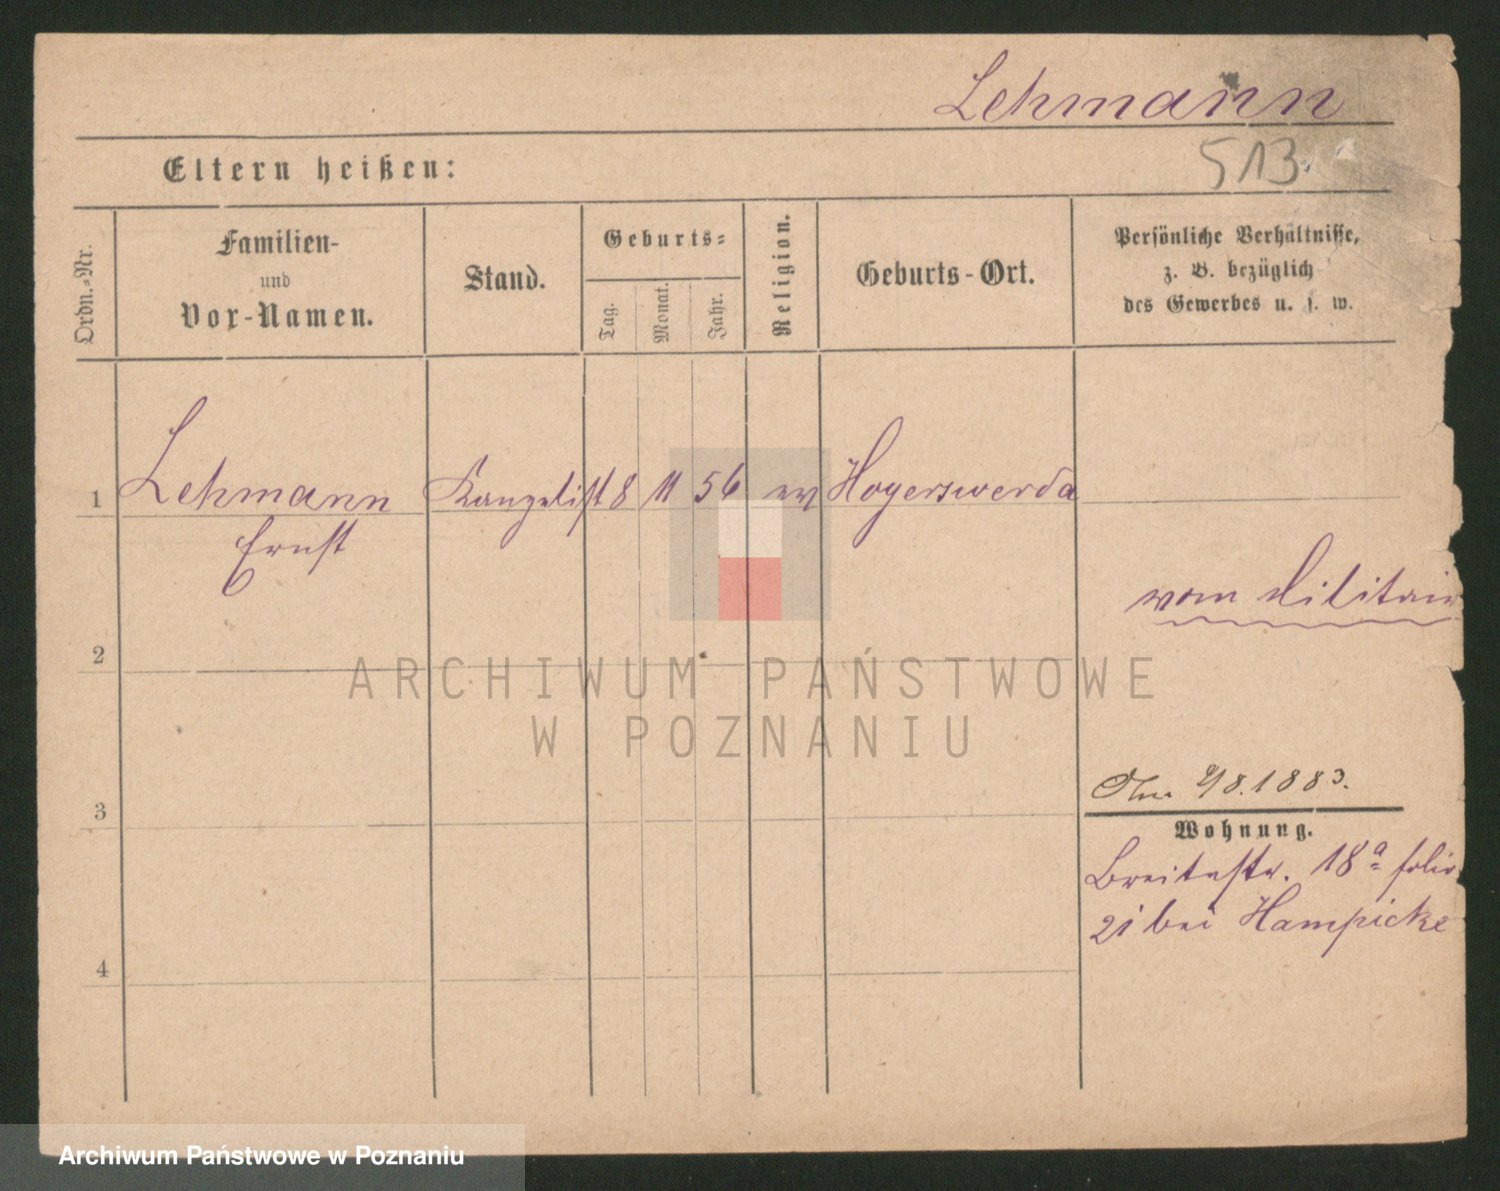 Lehmann
513.
Eltern heißen:
Ordn.-Nr.
Familien-
und
Vor-Namen.
Stand.
Geburts-
Tag.
Monat.
Jahr.
Religion.
Geburts-Ort.
Persönliche Verhältnisse,
z. B. bezüglich
des Gewerbes u. s. w.
1 Lehmann Kanzelist 8 11 56 ev Hoyerswerda
Ernst
vom Militair
2
ARCHIWUM PAŃSTWOWE
W POZNANIU
3
8.1883.
Wohnung.
Breitestr. 18a
bei Hampicke
4
Archiwum Państwowe w Poznaniu